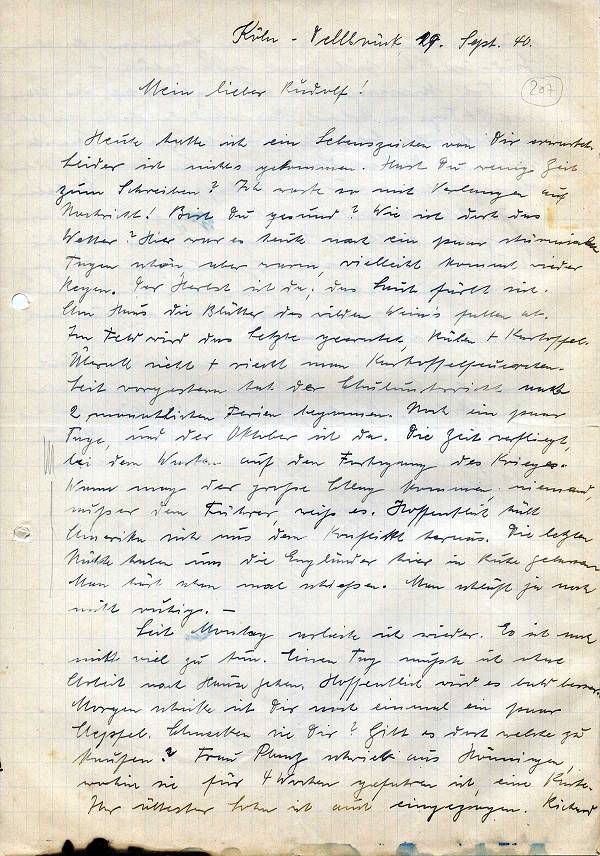 Köln - Dellbrück 29. Sept. 40.
207
Mein lieber Rudolf!
Heute hatte ich ein Lebenszeichen von Dir erwartet.
Leider ist nichts gekommen. Hast Du wenig Zeit
zum Schreiben? Ich warte so mit Verlangen auf
Nachricht! Bist Du gesund? Wie ist dort das
Wetter? Hier war es heute nach ein paar stürmischen
Tagen schön aber warm, vielleicht kommt wieder
Regen. Der Herbst ist da, das Laub färbt sich.
Am Haus die Blätter des wilden Wein's fallen ab.
Im Feld wird das Letzte geerntet, Rüben + Kartoffel.
Überall sieht + riecht man Kartoffelfeuerchen.
Seit vorgestern hat der Schulunterricht nach
2 monatlichen Ferien begonnen. Noch ein paar
Tage, und der Oktober ist da. Die Zeit verfliegt,
bei dem Warten auf den Fortgang des Krieges.
Wann mag der große Schlag kommen, niemand,
außer dem Führer, weiß es. Hoffentlich hält
Amerika sich aus dem Konflikt heraus. Die letzten
Nächte haben uns die Engländer hier in Ruhe gelassen.
Man hört schon mal schießen. Man schläft ja noch
nicht ruhig. –
Seit Montag arbeite ich wieder. Es ist noch
nicht viel zu tun. Einen Tag mußte ich ohne
Arbeit nach Hause gehen. Hoffentlich wird es bald besser.
Morgen schicke ich Dir noch einmal ein paar
Aepfel. Schmecken sie Dir? Gibt es dort welche zu
kaufen? Frau schrieb aus Hönningen,
wohin sie für 4 Wochen gefahren ist, eine Karte.
Ihr ältester Sohn ist auch eingezogen. Richard